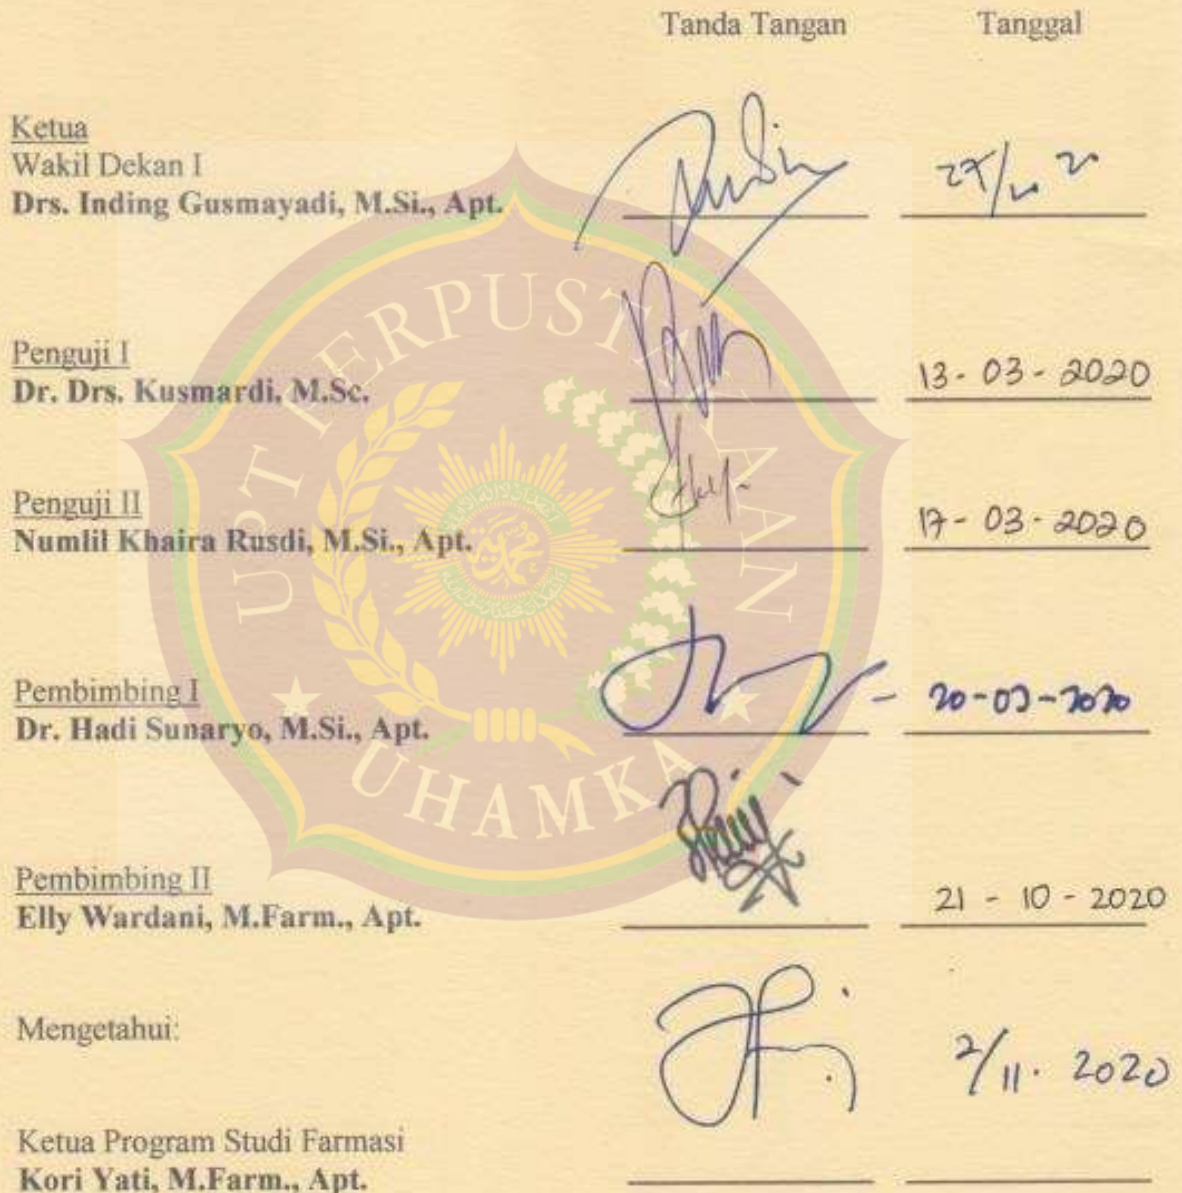 Tanda Tangan Tanggal
Ketua
Wakil Dekan I
Drs. Inding Gusmayadi, M.Si., Apt.
Penguji I
Dr. Drs. Kusmardi, M.Sc. 13-03-2020
Penguji II
Numlil Khaira Rusdi, M.Si., Apt. 17-03-2020
Pembimbing I
Dr. Hadi Sunaryo, M.Si., Apt. 20-03-2020
Pembimbing II
Elly Wardani, M.Farm., Apt. 21 - 10 - 2020
Mengetahui: 2/11. 2020
Ketua Program Studi Farmasi
Kori Yati, M.Farm., Apt.
UHAMKA